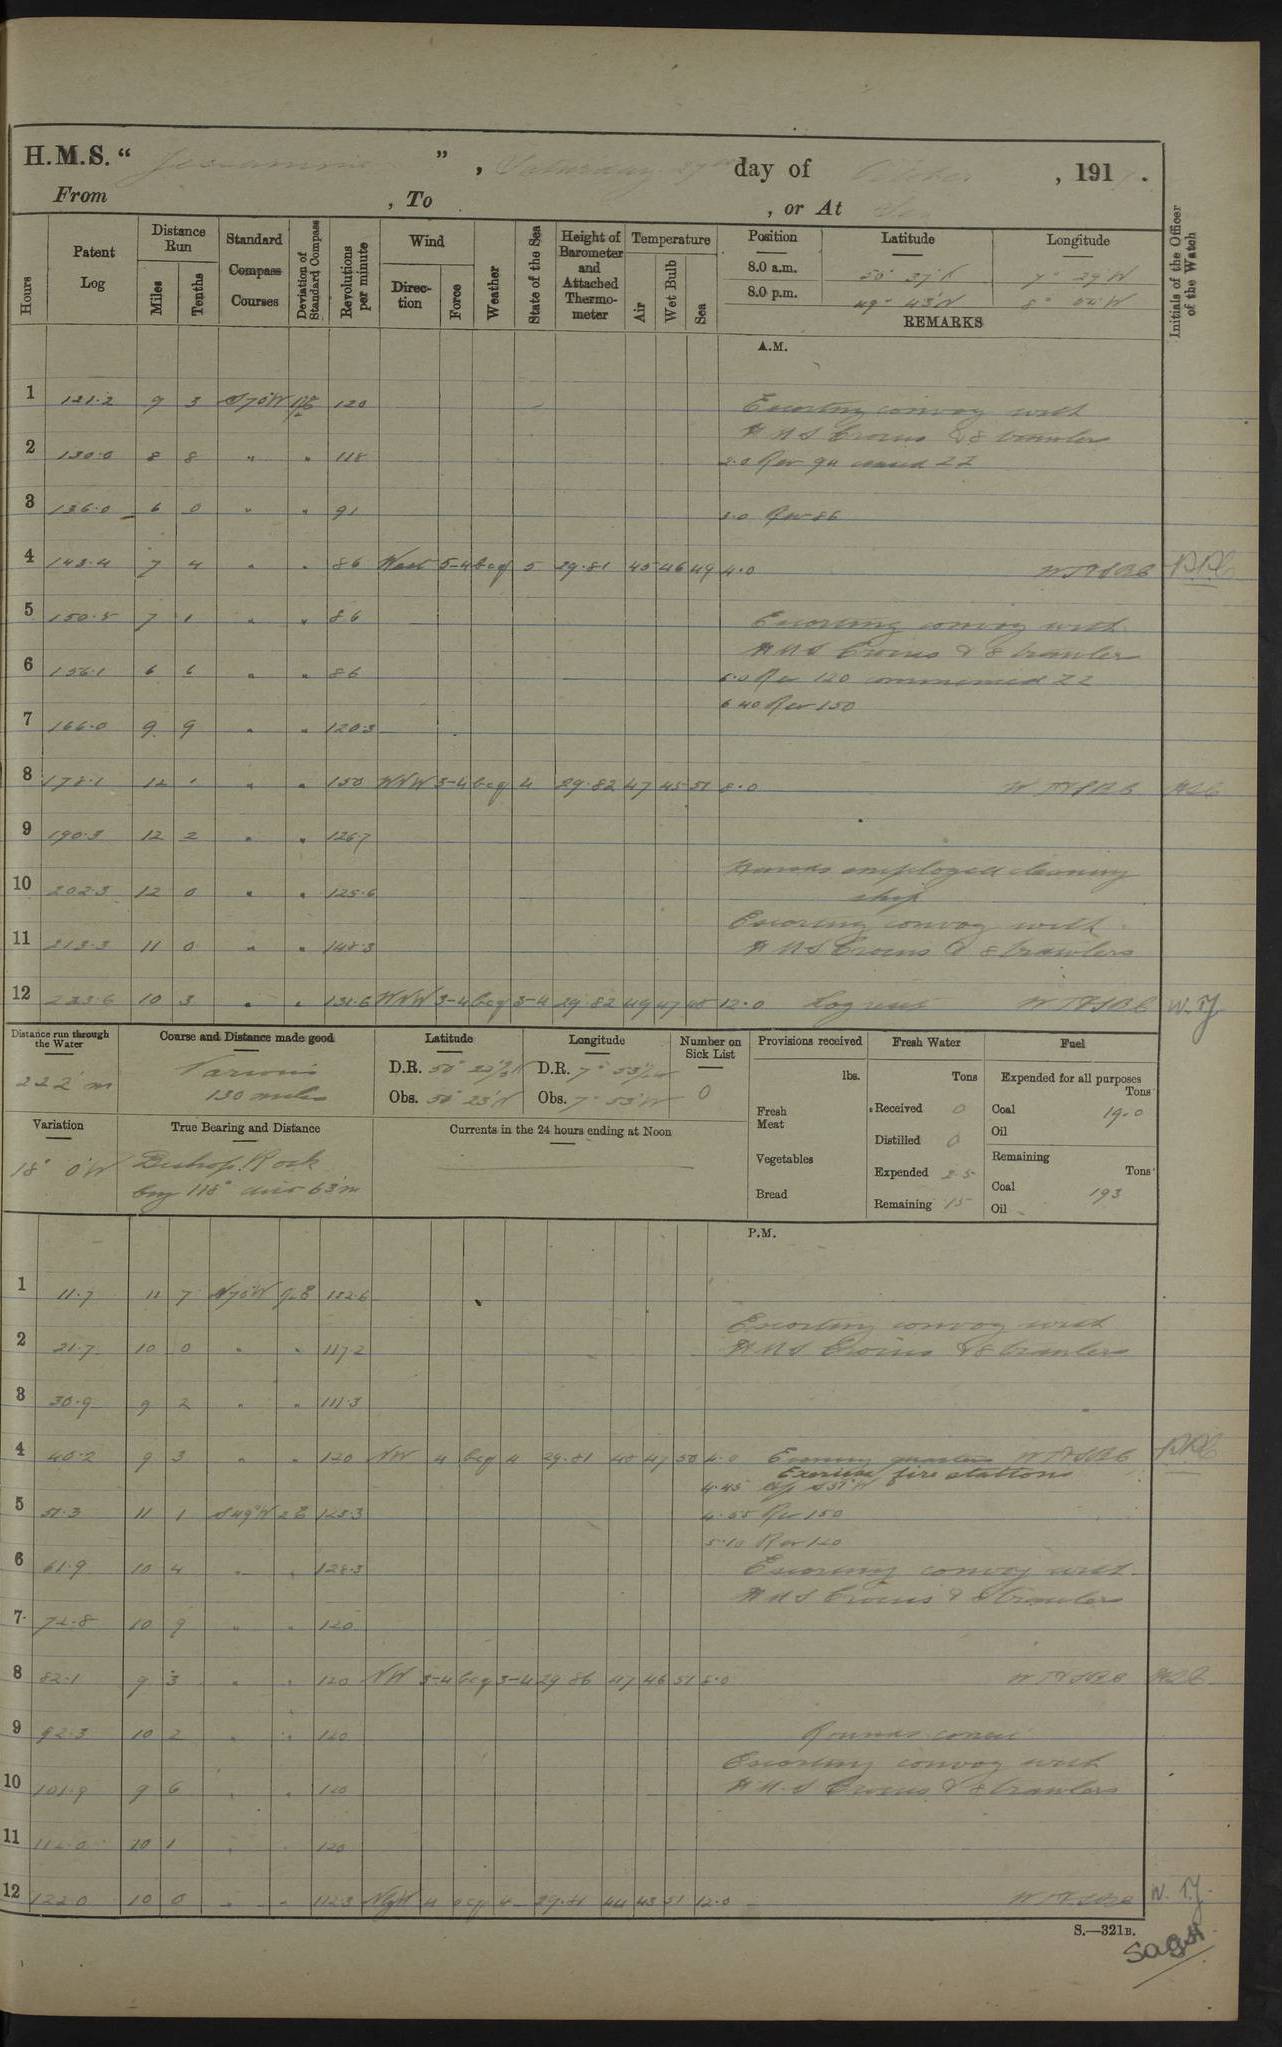 H.M.S. "Jessamine", Saturday 27th day of October, 191 .
From , To , or At Sea
Hours Patent Log Distance Run Miles Tenths Standard Compass Courses Deviation of Standard Compass Revolutions per minute Wind Direction Force Weather State of the Sea Height of Barometer and Attached Thermometer Temperature Air Wet Bulb Sea Position Latitude Longitude Initials of the Officer of the Watch
8.0 a.m. 50° 37' N 7° 29' W
8.0 p.m. 49° 43' N 8° W
REMARKS
A.M.
1 121.2 9 3 S70W 120 Escorting convoy with
H M S Crocus & 8 trawlers
2 130.0 8 8 " " 118 2.0 Rev 94 ceased ZZ
3 136.0 6 0 " " 91 3.0 Rev 86
4 143.4 7 4 " " 86 West 3-4 bcq 5 29.81 45 46 49 4.0
5 150.5 7 1 " " 86 Escorting convoy with
H M S Crocus & 8 trawlers
6 156.1 6 6 " " 86 6.0 Rev 120 commenced ZZ
6 40 Rev 150
7 166.0 9 9 " " 120.3
8 178.1 12 1 " " 150 WNW 3-4 bcq 4 29.82 47 45 51 8.0
9 190.3 12 2 " " 126.7
Hands employed cleaning
10 202.3 12 0 " " 125.6 ship
Escorting convoy with
11 213.3 11 0 " " 148.3 H M S Crocus & 8 trawlers
12 223.6 10 3 " " 131.6 WNW 3-4 bcq 3-4 29.82 49 47 12.0 W.T.J.
Distance run through the Water Course and Distance made good Latitude Longitude Number on Sick List Provisions received Fresh Water Fuel
222 m Various
130 miles
D.R. 50° N D.R. 7° 53' W 0
Obs. 50° 23' N Obs. 7° 53' W
lbs. Tons Expended for all purposes Tons
Fresh Meat Received 0 Coal 19.0
Oil
Distilled 0 Remaining Tons
Vegetables Expended 2.5 Coal 193
Bread Remaining 15 Oil
Variation True Bearing and Distance Currents in the 24 hours ending at Noon
18° 0' W Bishop Rock
brg 118° dist 63 m
P.M.
1 11.7 11 7 N70W 132.6
Escorting convoy with
2 21.7 10 0 " " 117.2 H M S Crocus & 8 trawlers
3 30.9 9 2 " " 111.3
4 40.2 9 3 " " 120 NW 4 bcq 4 29.81 48 47 50 4.0 Evening quarters
Exercise fire stations
4.45
5 51.3 11 1 S49W 2E 125.3 4.55 Rev 150
5.10 Rev 120
6 61.9 10 4 " " 128.3 Escorting convoy with
H M S Crocus & 8 trawlers
7 72.8 10 9 " " 120
8 82.1 9 3 " " 120 NW 3-4 bcq 3-4 29 86 47 46 51 8.0
9 92.3 10 2 " " 120 Rounds correct
Escorting convoy with
10 101.9 9 6 " " 120 H M S Crocus & 8 trawlers
11 112.0 10 1 " " 120
12 122.0 10 0 " " 112.3 4 4 29.81 44 43 51 12.0 W.T.J.
S.—321B.